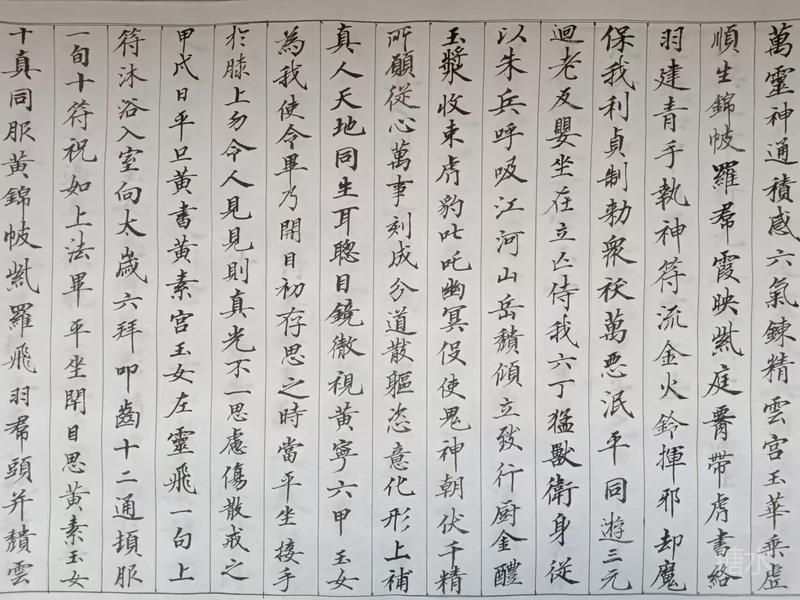 萬靈神通積感六氣鍊精雲宮玉華乘虛
順生錦帔羅帬霞映紫庭腰帶虎書絡
羽建青手執神符流金火鈴揮邪却魔
保我利貞制勅衆祅萬惡泯平同遊三元
迴老反嬰坐在立亡侍我六丁猛獸衛身從
以朱兵呼吸江河山岳頹傾立致行厨金醴
玉漿收束虎豹叱吒幽冥役使鬼神朝伏千精
所願從心萬事剋成分道散軀恣意化形上補
真人天地同生耳聰目鏡徹視黃寧六甲玉女
為我使令畢乃開目初存思之時當平坐接手
於膝上勿令人見見則真光不一思慮傷散戒之
甲戌日平旦黃書黃素宮玉女左靈飛一旬上
符沐浴入室向太歲六拜叩齒十二通頓服
一旬十符祝如上法畢平坐閉目思黃素玉女
十真同服黃錦帔紫羅飛羽帬頭并頹雲